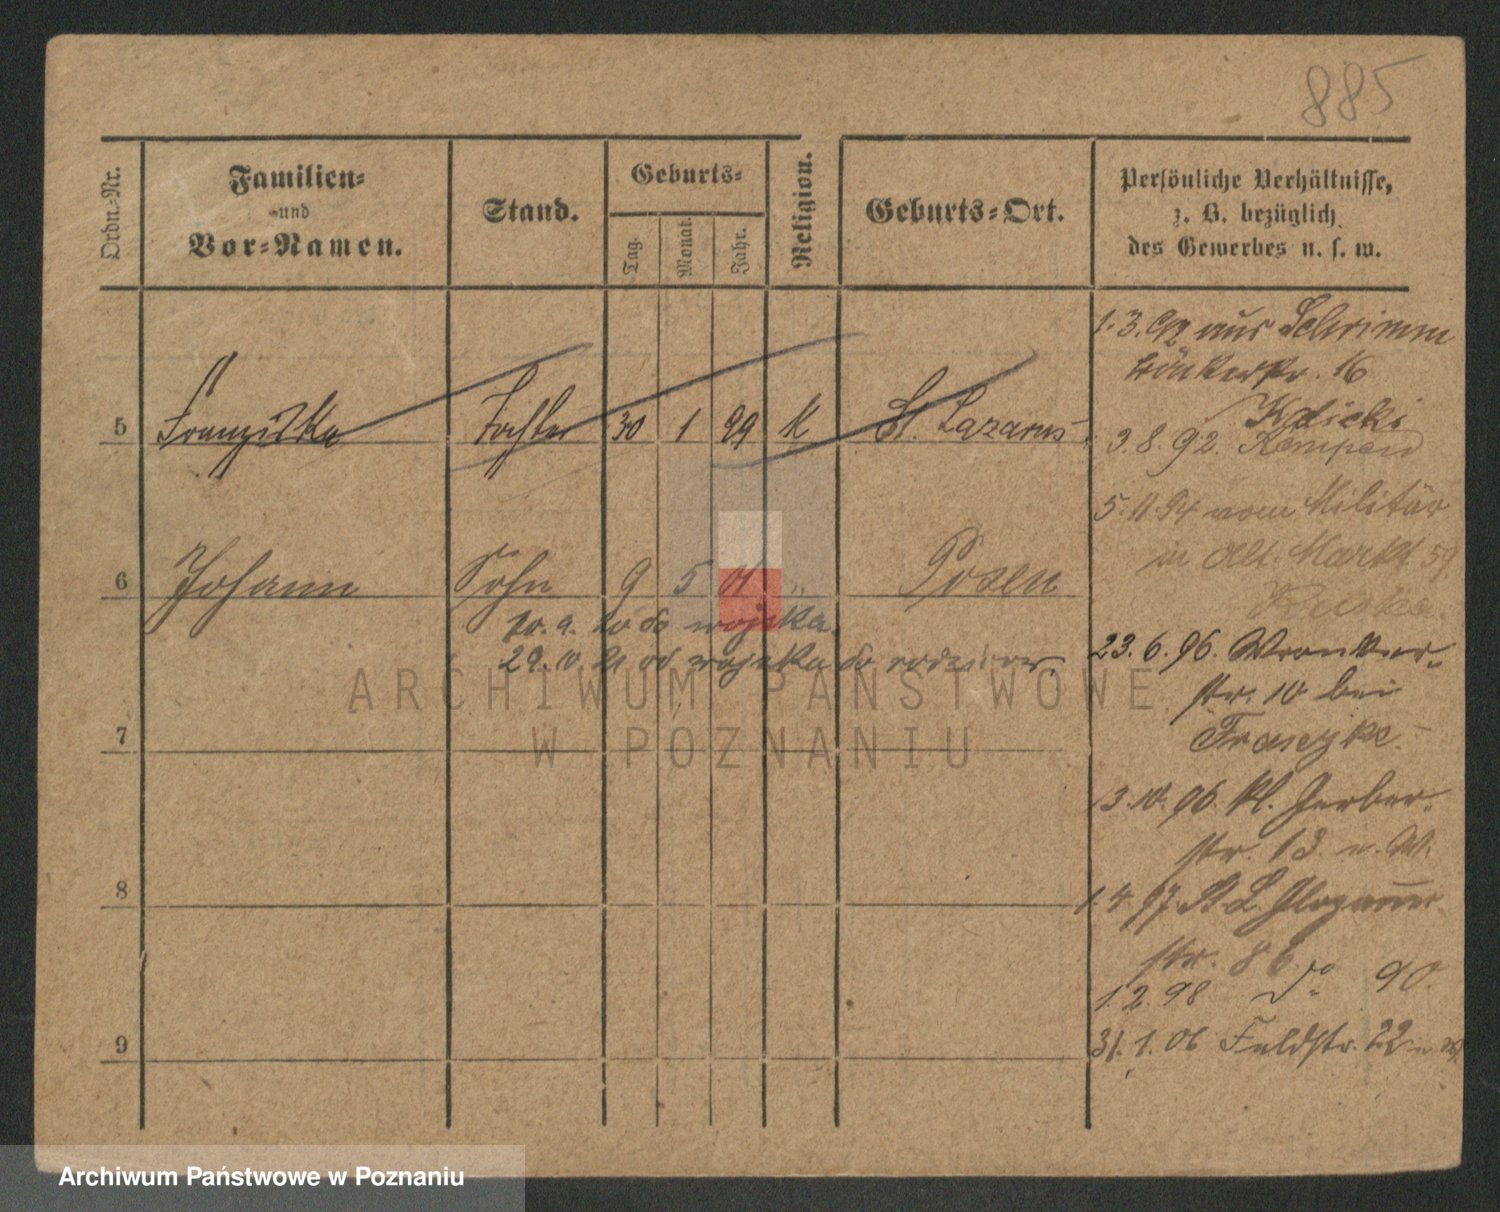 885
Ordn.-Nr.
Familien-
und
Vor-Namen.
Stand.
Geburts-
Tag.
Monat.
Jahr.
Religion.
Geburts-Ort.
Persönliche Verhältnisse,
z. B. bezüglich
des Gewerbes u. s. w.
5 Franziska Tochter 30 1 99 K St. Lazarus
6 Johann Sohn 9 5 01 " Posen
10. 9. 20 do wojska.
29. 10. 21 od wojska do rodziców.
7
8
9
1. 3. 92 aus Schrimm
16
3. 8. 92. Kempen
5. 11. 94 vom Militär
in Alt. Markt 59
23. 6. 96. Wronker-
str. 10 bei
3. 10. 96. kl. Gerber-
str. 13. n. W.
1. 4. 97. St. L. Glogauer
str. 86
1. 2. 98 do 90.
31. 1. 06 Feldstr. 22
ARCHIWUM PAŃSTWOWE
W POZNANIU
Archiwum Państwowe w Poznaniu